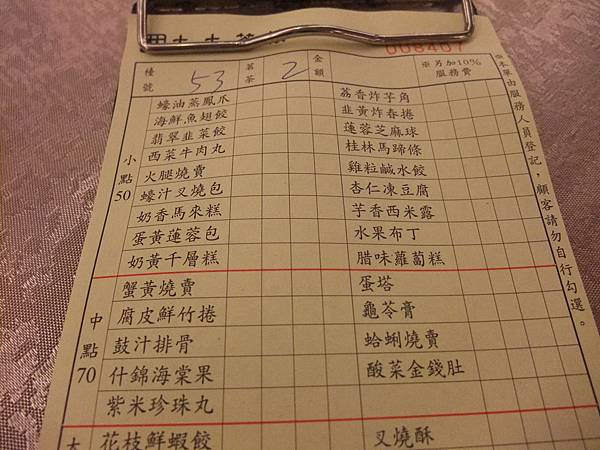 008407
檯號 53 茗茶 2 金額 ※另加10%服務費
※本單由服務人員登記，顧客請勿自行勾選。
小點50
蠔油蒸鳳爪 荔香炸芋角
海鮮魚翅餃 韭黃炸春捲
翡翠韭菜餃 蓮蓉芝麻球
西菜牛肉丸 桂林馬蹄條
火腿燒賣 雞粒鹹水餃
蠔汁叉燒包 杏仁凍豆腐
奶香馬來糕 芋香西米露
蛋黃蓮蓉包 水果布丁
奶黃千層糕 腊味蘿蔔糕
中點70
蟹黃燒賣 蛋塔
腐皮鮮竹捲 龜苓膏
鼓汁排骨 蛤蜊燒賣
什錦海棠果 酸菜金錢肚
紫米珍珠丸
大
花枝鮮蝦餃 叉燒酥